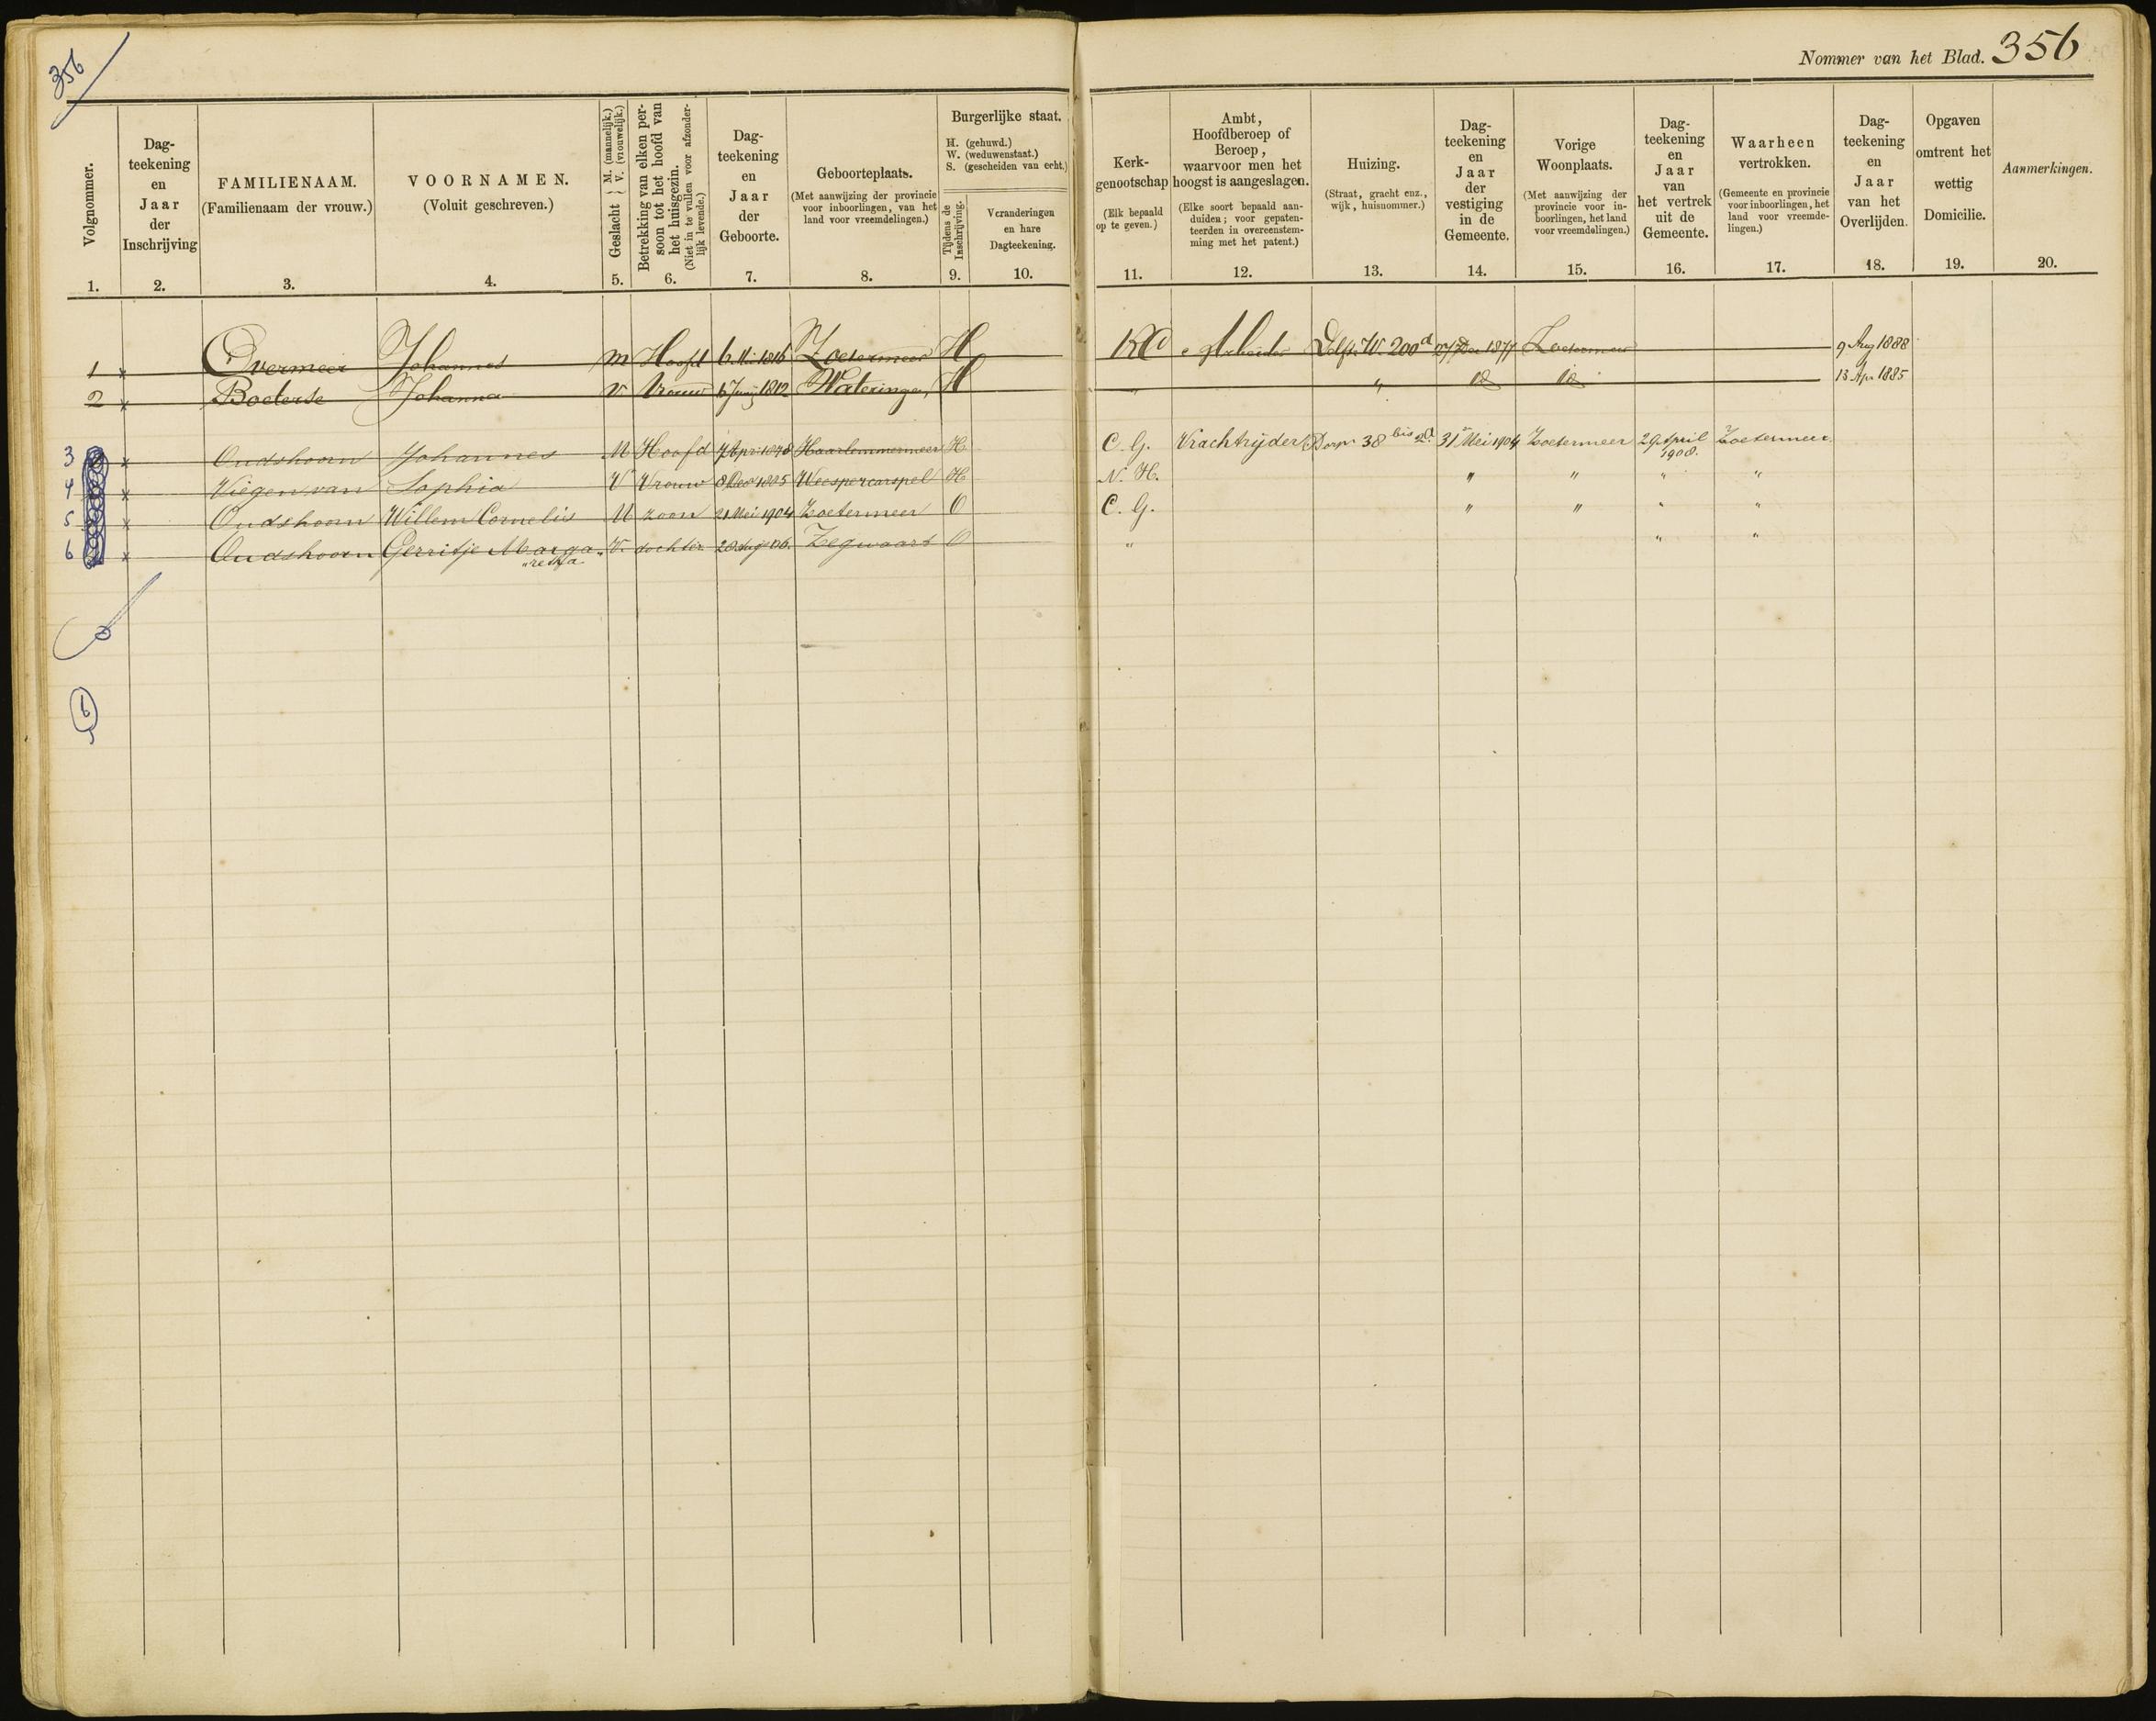 356
Nommer van het Blad. 356
Volgnommer.
1.
Dag-
teekening
en
Jaar
der
Inschrijving
2.
FAMILIENAAM.
(Familienaam der vrouw.)
3.
VOORNAMEN.
(Voluit geschreven.)
4.
Geslacht { M. (mannelijk.) V. (vrouwelijk.)
5.
Betrekking van elken per-
soon tot het hoofd van
het huisgezin.
(Niet in te vullen voor afzonder-
lijk levende.)
6.
Dag-
teekening
en
Jaar
der
Geboorte.
7.
Geboorteplaats.
(Met aanwijzing der provincie
voor inboorlingen, van het
land voor vreemdelingen.)
8.
Burgerlijke staat.
H. (gehuwd.)
W. (weduwenstaat.)
S. (gescheiden van echt.)
Tijdens de
Inschrijving.
9.
Veranderingen
en hare
Dagteekening.
10.
Kerk-
genootschap
(Elk bepaald
op te geven.)
11.
Ambt,
Hoofdberoep of
Beroep,
waarvoor men het
hoogst is aangeslagen.
(Elke soort bepaald aan-
duiden; voor gepaten-
teerden in overeenstem-
ming met het patent.)
12.
Huizing.
(Straat, gracht enz.,
wijk, huisnommer.)
13.
Dag-
teekening
en
Jaar
der
vestiging
in de
Gemeente.
14.
Vorige
Woonplaats.
(Met aanwijzing der
provincie voor in-
boorlingen, het land
voor vreemdelingen.)
15.
Dag-
teekening
en
Jaar
van
het vertrek
uit de
Gemeente.
16.
Waarheen
vertrokken.
(Gemeente en provincie
voor inboorlingen, het
land voor vreemde-
lingen.)
17.
Dag-
teekening
en
Jaar
van het
Overlijden.
18.
Opgaven
omtrent het
wettig
Domicilie.
19.
Aanmerkingen.
20.
1 Overmeer Johannes m Hoofd 6 Mei 1816 Zoetermeer H RC Arbeider 200d Dec 1877 Zoetermeer 9 Aug 1888
2 Boeterse Johanna v Vrouw 1812 Wateringen H " " id id 13 Apr 1885
3 Oudshoorn Johannes M Hoofd 7 April 1878 Haarlemmermeer H C. G. Vrachtrijder Dorp 38 bis a 31 Mei 1904 Zoetermeer 29 April 1908. Zoetermeer
4 Viegen van Sophia V Vrouw 8 Dec Weespercarspel H N. H. " " " "
5 Oudshoorn Willem Cornelis M zoon 21 Mei 1904 Zoetermeer O C. G. " " " "
6 Oudshoorn Gerritje Marga- V. dochter 06. Zegwaart O " " "
"retha
6